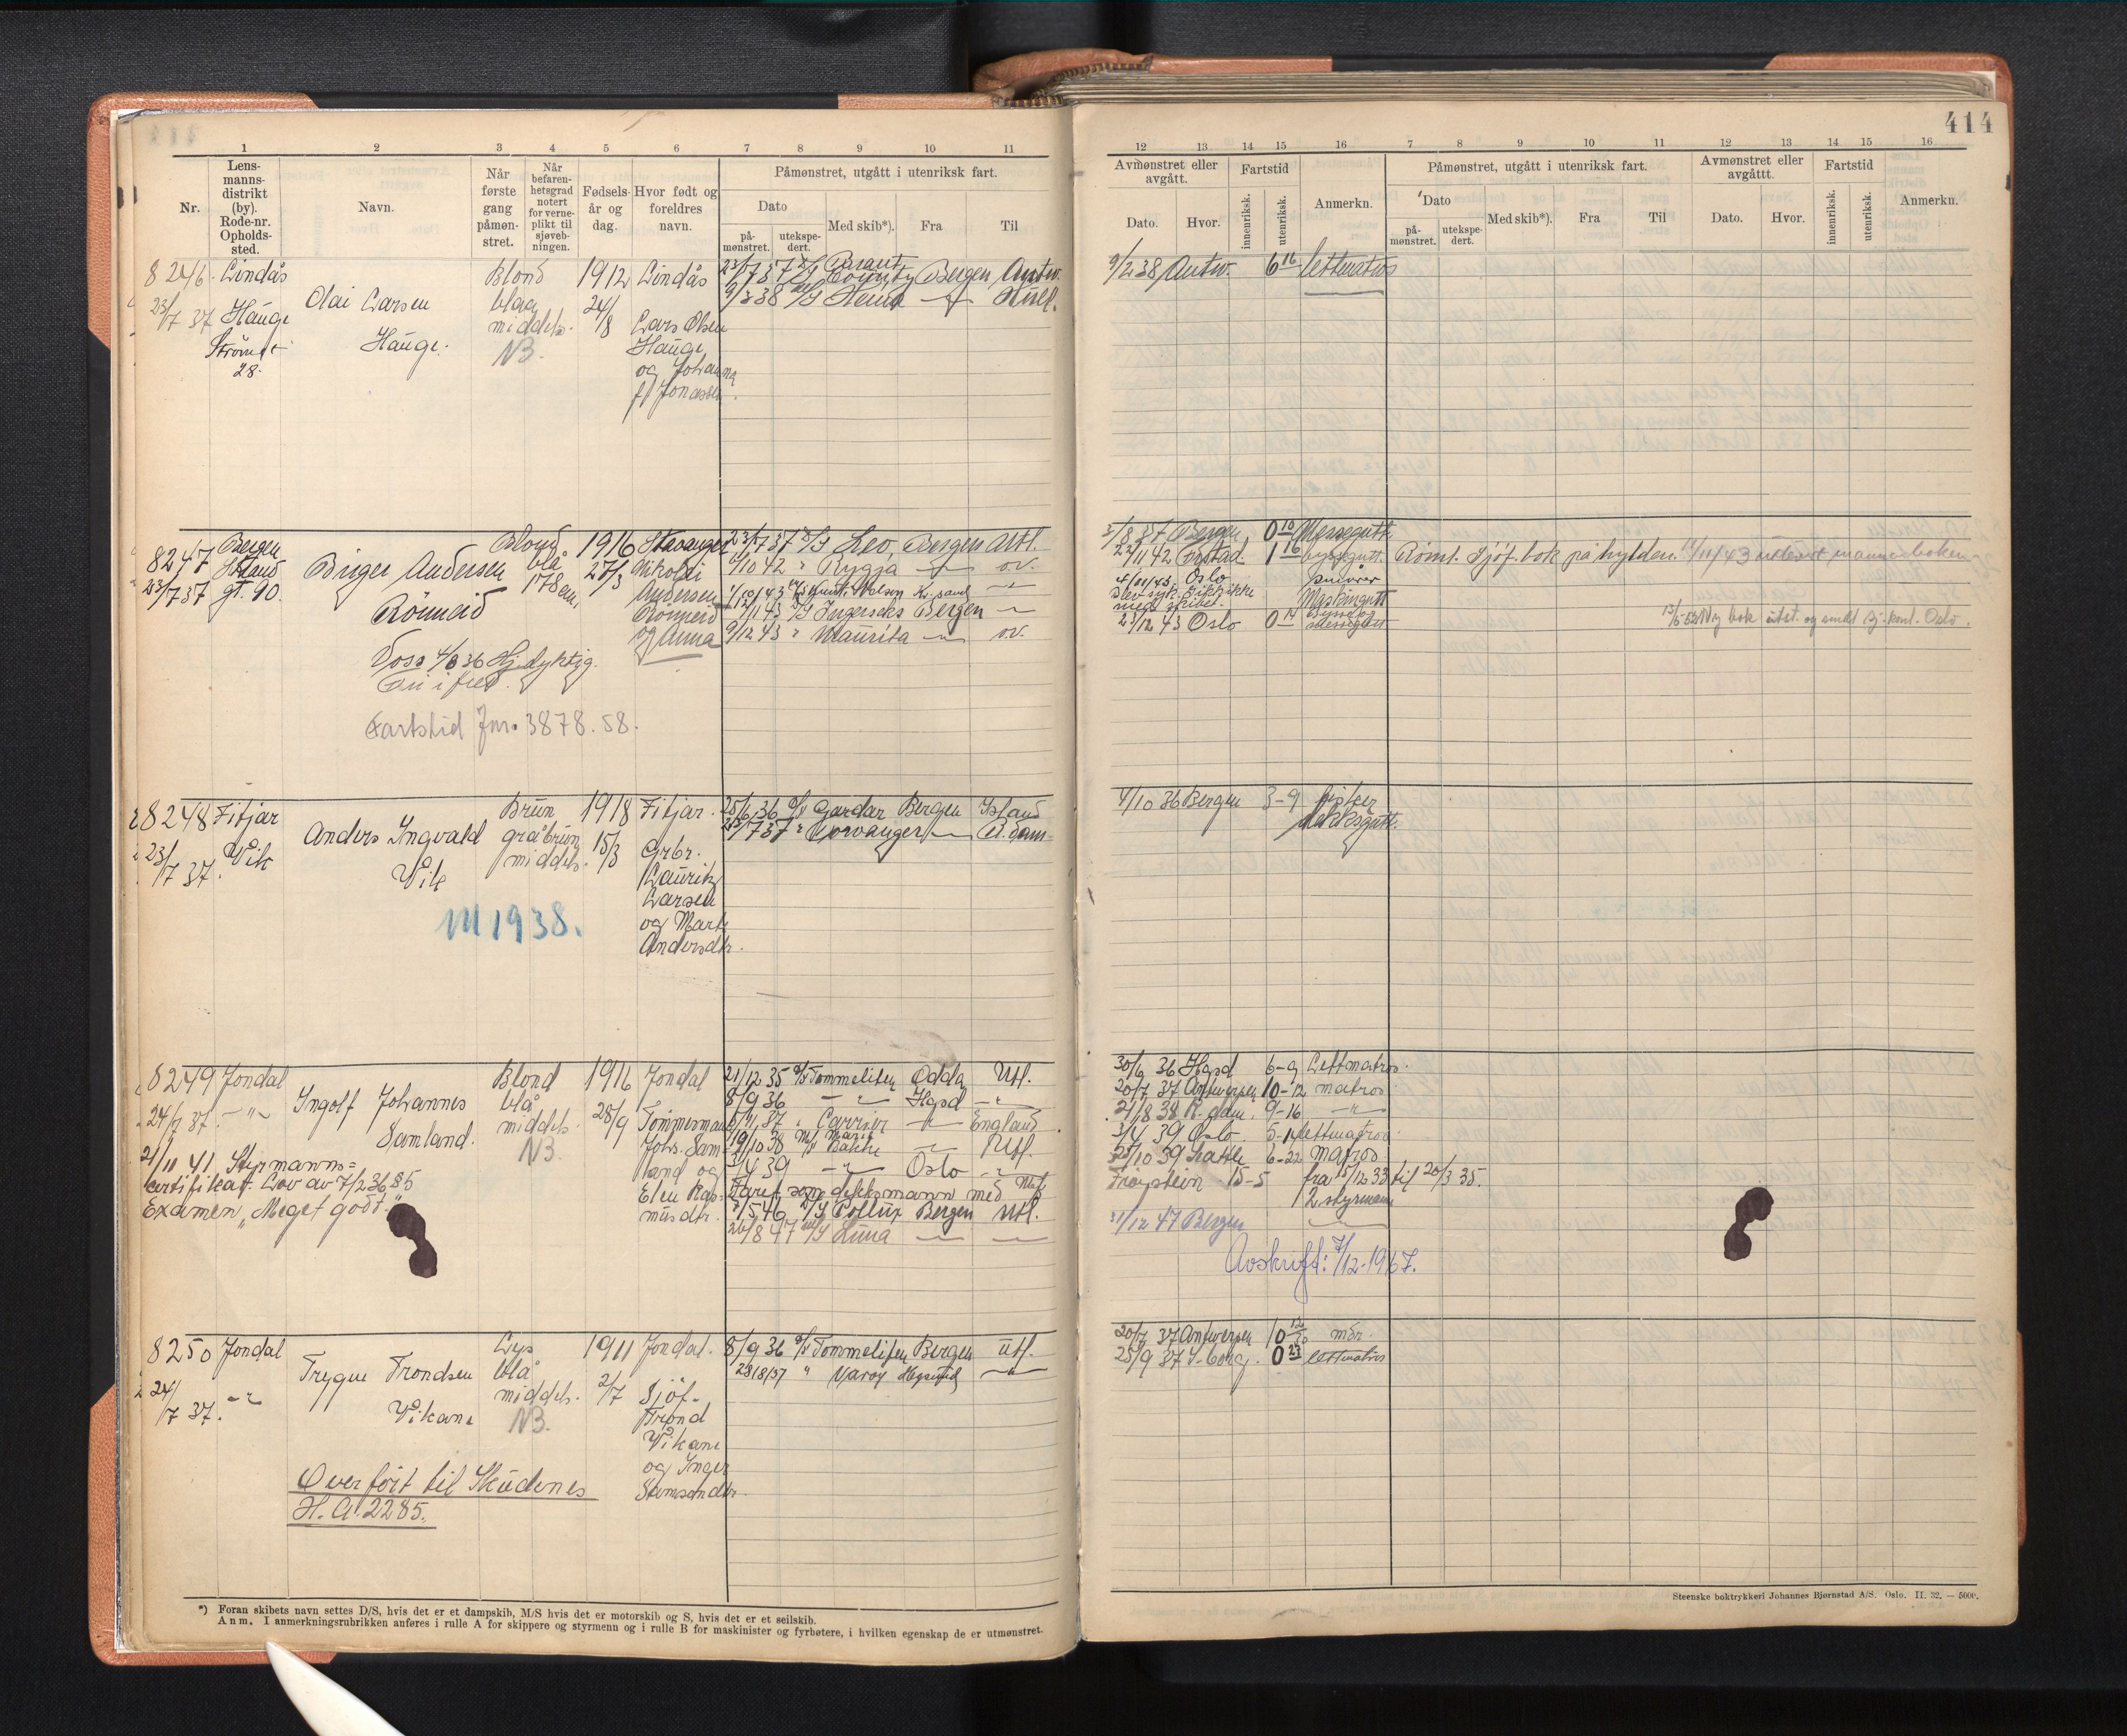 414
1 2 3 4 5 6 7 8 9 10 11
Nr.
Lens-
manns-
distrikt
(by).
Rode-nr.
Opholds-
sted.
Navn.
Når
første
gang
påmøn-
stret.
Når
befaren-
hetsgrad
notert
for verne-
plikt til
sjøveb-
ningen.
Fødsels-
år og
dag.
Hvor født og
foreldres
navn.
Påmønstret, utgått i utenriksk fart.
Dato
på-
mønstret.
utekspe-
dert.
Med skib*).
Fra
Til
12 13 14 15 16 7 8 9 10 11 12 13 14 15 16
Avmønstret eller
avgått.
Dato.
Hvor.
Fartstid
innenriksk.
utenriksk.
Anmerkn.
Påmønstret, utgått i utenriksk fart.
Dato
på-
mønstret.
utekspe-
dert.
Med skib*).
Fra
Til
Avmønstret eller
avgåttt.
Dato.
Hvor.
Fartstid
innenriksk.
utenriksk.
Anmerkn.
8246 Lindås
23/7 37 Hauge
28.
Olai Larsen
Hauge.
Blond
blaa
middels.
NB.
1912
24/8
Lindås
Lars Olsen
Hauge
og Johanna
f. Jonassen.
23/7 37 D/S County Bergen Antw.
9/2 38 Hull.
9/2 38 Antw. 6 16 lettmatros
8247 Bergen
23/7 37 gt. 90.
Birger Andersen
Rönneid
Blond
blå
178 cm.
1916
27/3
Stavanger
Nikolai
Andersen
Rönneid
og Anna
23/7 37 D/S Leo, Bergen Utl.
1/10 42 " Rygja ov.
12/11 43 D/S Ingerseks Bergen
9/12 43 " Maurita ov.
Voss 4/8 36 Hj. dyktig.
Fri i fred.
Fartstid Jnr. 3878. 58.
3/8 37 Bergen 0 10 Messegutt
22/11 42 1 16
4/11 43 Oslo
Blev syk. Gikk ikke
med skibet.
Maskingutt
23/12 43 Oslo 0 14
Römt. Sjöf. bok på hylden.
13/5-52 Ny bok utst. og sendt Sj. kont. Oslo.
8248 Fitjar
23/7 37. Vik
Anders Ingvald
Vik
M 1938.
Brun
gråbrun
middels.
1918
15/3
Fitjar.
Grbr.
Laurits
Larsen
og Marta
Andersdtr.
25/6 36 Gardar Bergen Island
23/7 37 " Corvanger A.dam
4/10 36 Bergen 3-9 fisker
dekksgutt.
8249 Jondal
24/7 37. - " -
Ingolf Johannes
Samland.
Blond
blå
middels.
NB.
1916
28/9
Jondal
Tömmerman
Johs. Sam-
land og
Elen Ras-
musdtr.
21/11 41 Styrmanns=
certifikat Lov av 7/2 36 § 5
Examen "Meget godt."
21/12 35 D/S Tommeliten Odda Utl.
8/9 36 - " - Hgsd - " -
" Carrier England
19/10 38 M/S Marie Bakke Utl.
3/4 39 - " - Oslo - " -
Faret som dekksmann med
5 46 D/S Pollux Bergen Utl.
26/8 47 M/S Luna
30/6 36 Hgsd 6-9 Lettmatros.
20/7 37 Antwerpen 10-12 matros
21/8 38 R.dam. 9-16 - " -
3/4 39 Oslo 5-14 lettmatros
10 39 6-22 matros
Fröystein 15-5 fra 15/12 33 til 20/3 35.
2 styrmann
21/12 47 Bergen
Avskrift: 7/12-1967.
8250 Jondal
24/7 37. - " -
Trygve Trondsen
Vikane
Lys
blå
middels.
NB.
1911
2/7
Jondal.
Sjöf.
Trond
Vikane
og Inger
Samsondtr.
8/9 36 D/S Tommeliten Bergen utl.
28/8/37 " Varöy Høgsund - " -
Overfört til Skudenes
H. A. 2285.
20/7 37 Antwerpen 10 12 mdr.
25/9 37 S-borg. 0 27 lettmatros
*) Foran skibets navn settes D/S, hvis det er et dampskib, M/S hvis det er motorskib og S, hvis det er et seilskib.
Anm. I anmerkningsrubrikken anføres i rulle A for skippere og styrmenn og i rulle B for maskinister og fyrbøtere, i hvilken egenskap de er utmønstret.
Steenske boktrykkeri Johannes Bjørnstad A/S. Oslo. II. 32. — 5000.